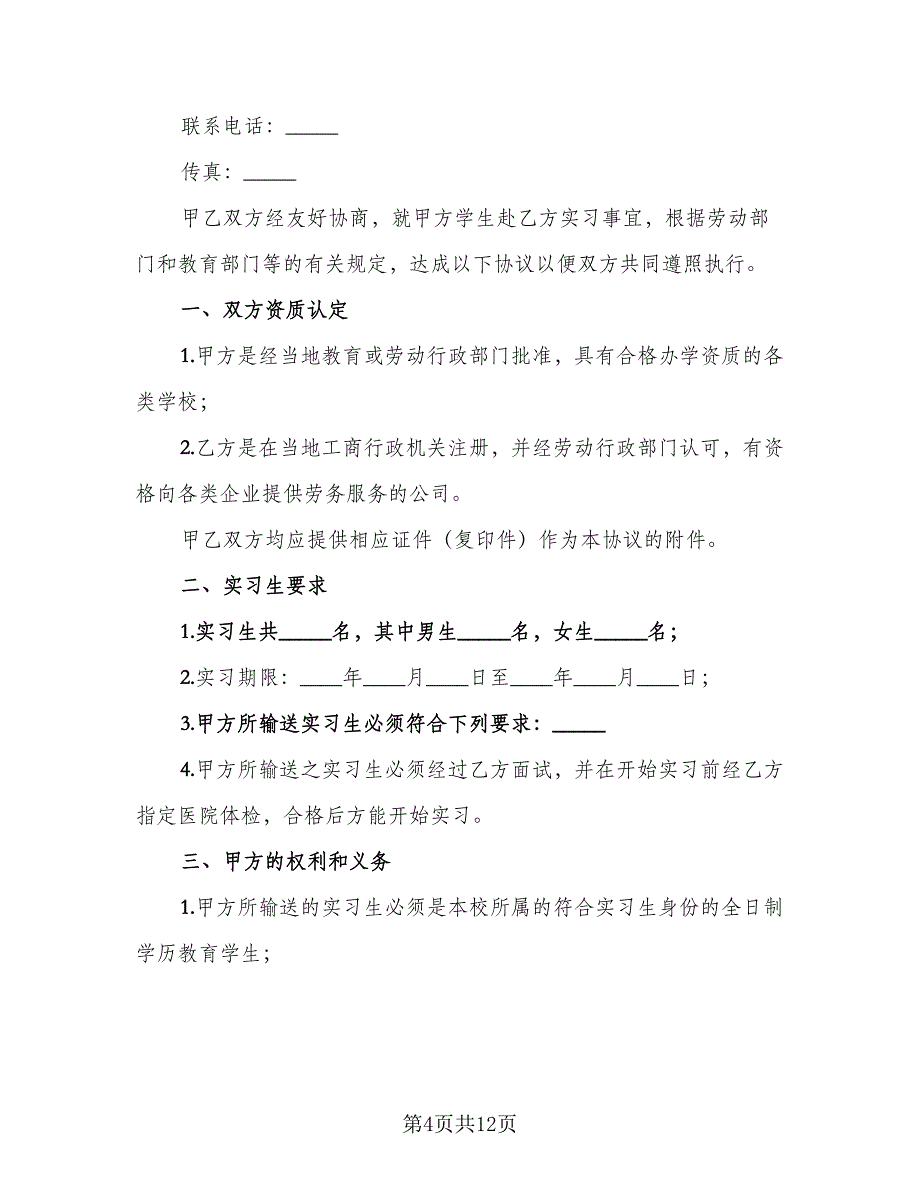 联系电话：_____
传真：_____
甲乙双方经友好协商，就甲方学生赴乙方实习事宜，根据劳动部
门和教育部门等的有关规定，达成以下协议以便双方共同遵照执行。
一、双方资质认定
1.甲方是经当地教育或劳动行政部门批准，具有合格办学资质的各
类学校；
2.乙方是在当地工商行政机关注册，并经劳动行政部门认可，有资
格向各类企业提供劳务服务的公司。
甲乙双方均应提供相应证件（复印件）作为本协议的附件。
二、实习生要求
1.实习生共_____名，其中男生_____名，女生_____名；
2.实习期限：____年____月____日至____年____月____日；
3.甲方所输送实习生必须符合下列要求：_____
4.甲方所输送之实习生必须经过乙方面试，并在开始实习前经乙方
指定医院体检，合格后方能开始实习。
三、甲方的权利和义务
1.甲方所输送的实习生必须是本校所属的符合实习生身份的全日制
学历教育学生；
第4页共12页